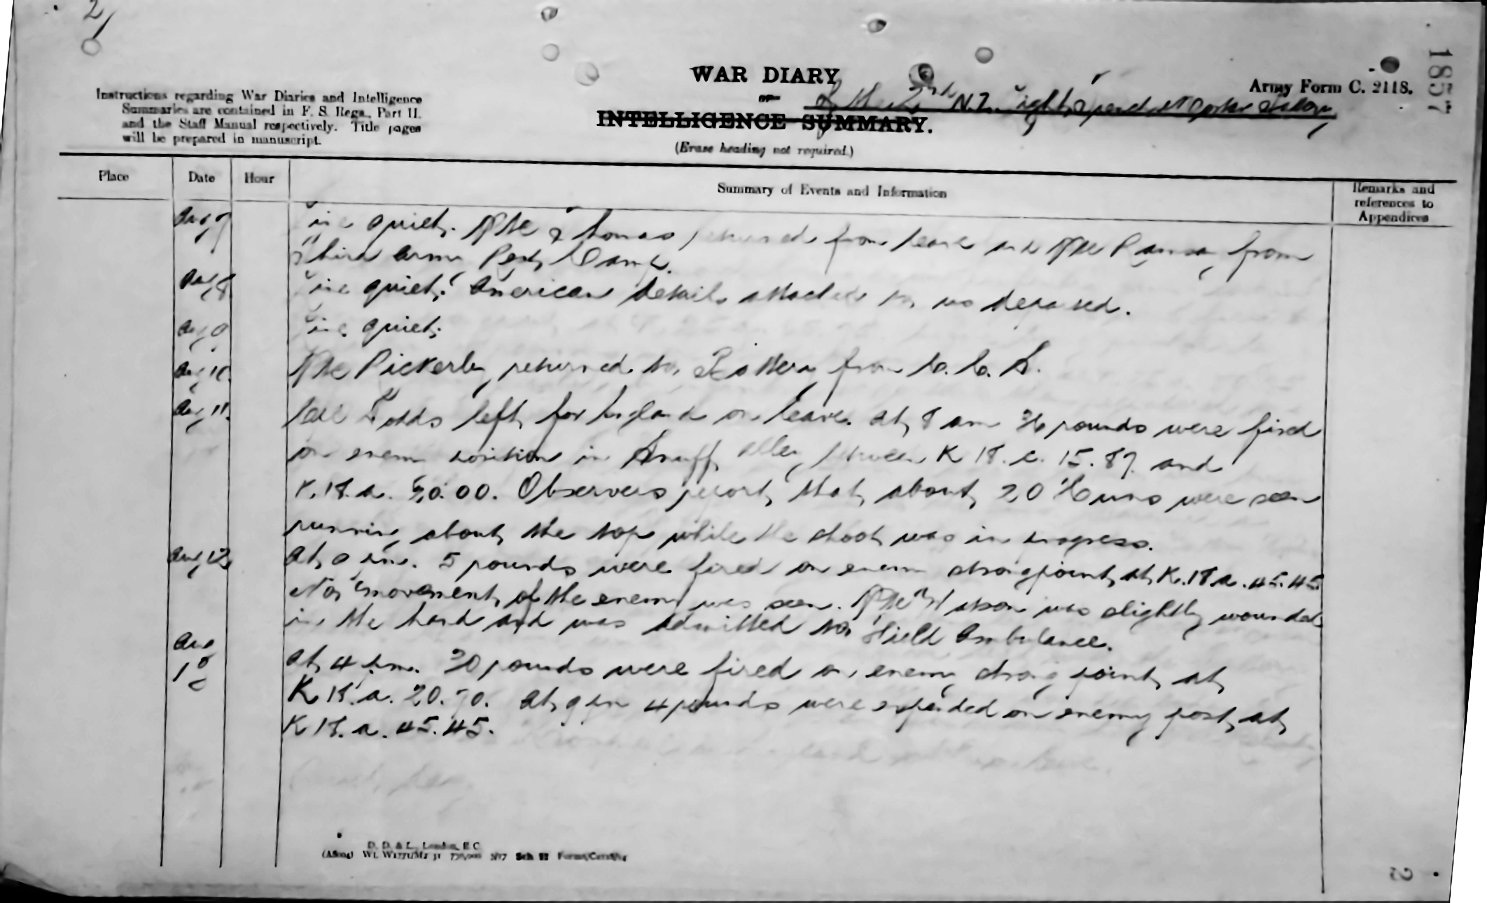 2/
WAR DIARY
or
of the 2nd N.Z. Light Trench Mortar Battery
INTELLIGENCE SUMMARY.
(Erase heading not required.)
Army Form C. 2118.
1857
Instructions regarding War Diaries and Intelligence
Summaries are contained in F. S. Regs., Part II.
and the Staff Manual respectively. Title pages
will be prepared in manuscript.
Place Date Hour Summary of Events and Information Remarks and references to Appendices
Aug 7 Line quiet. Pte Thomas returned from leave and Pte from
Third Army Rest Camp.
Aug 8 Line quiet. American details attached to us departed.
Aug 9 Line quiet.
Aug 10. Pte Pickerby returned to Battery from C. C. S.
Aug 11. left for England on leave. At 8 am 36 rounds were fired
on enemy position in Snuff Alley between K 18. c. 15.87 and
K.18.a. 50.00. Observers report that about 20 Huns were seen
running about the top while the shoot was in progress.
Aug 12 At 9 pm. 5 rounds were fired on enemy strongpoint at K.18.a.45.45
No movement of the enemy was seen. Pte was slightly wounded
in the hand and was admitted to Field Ambulance.
Aug 13 At 4 pm. 30 rounds were fired on enemy strong point at
K 18.a. 20.70. At 9 pm 4 rounds were expended on enemy post at
K 18. a. 45.45.
D. D. & L., London, E.C.